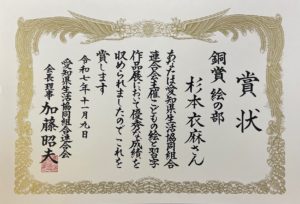 賞状
銅賞 絵の部
杉本衣麻さん
あなたは愛知県生活協同組合
連合会主催こどもの絵と習字
作品展において優秀な成績を
収められましたのでこれを
賞します
令和七年十一月九日
愛知県生活協同組合連合会
会長理事 加藤昭夫